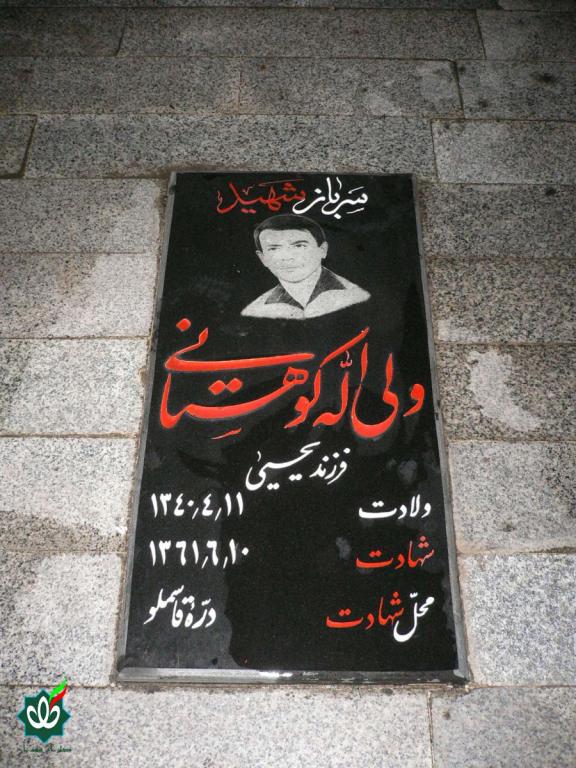 سرباز شهید
ولی اله کوهستانی
فرزند یحیی
ولادت ۱۳۴۰٫۴٫۱۱
شهادت ۱۳۶۱٫۶٫۱۰
محلّ شهادت درّهٔ قاسملو